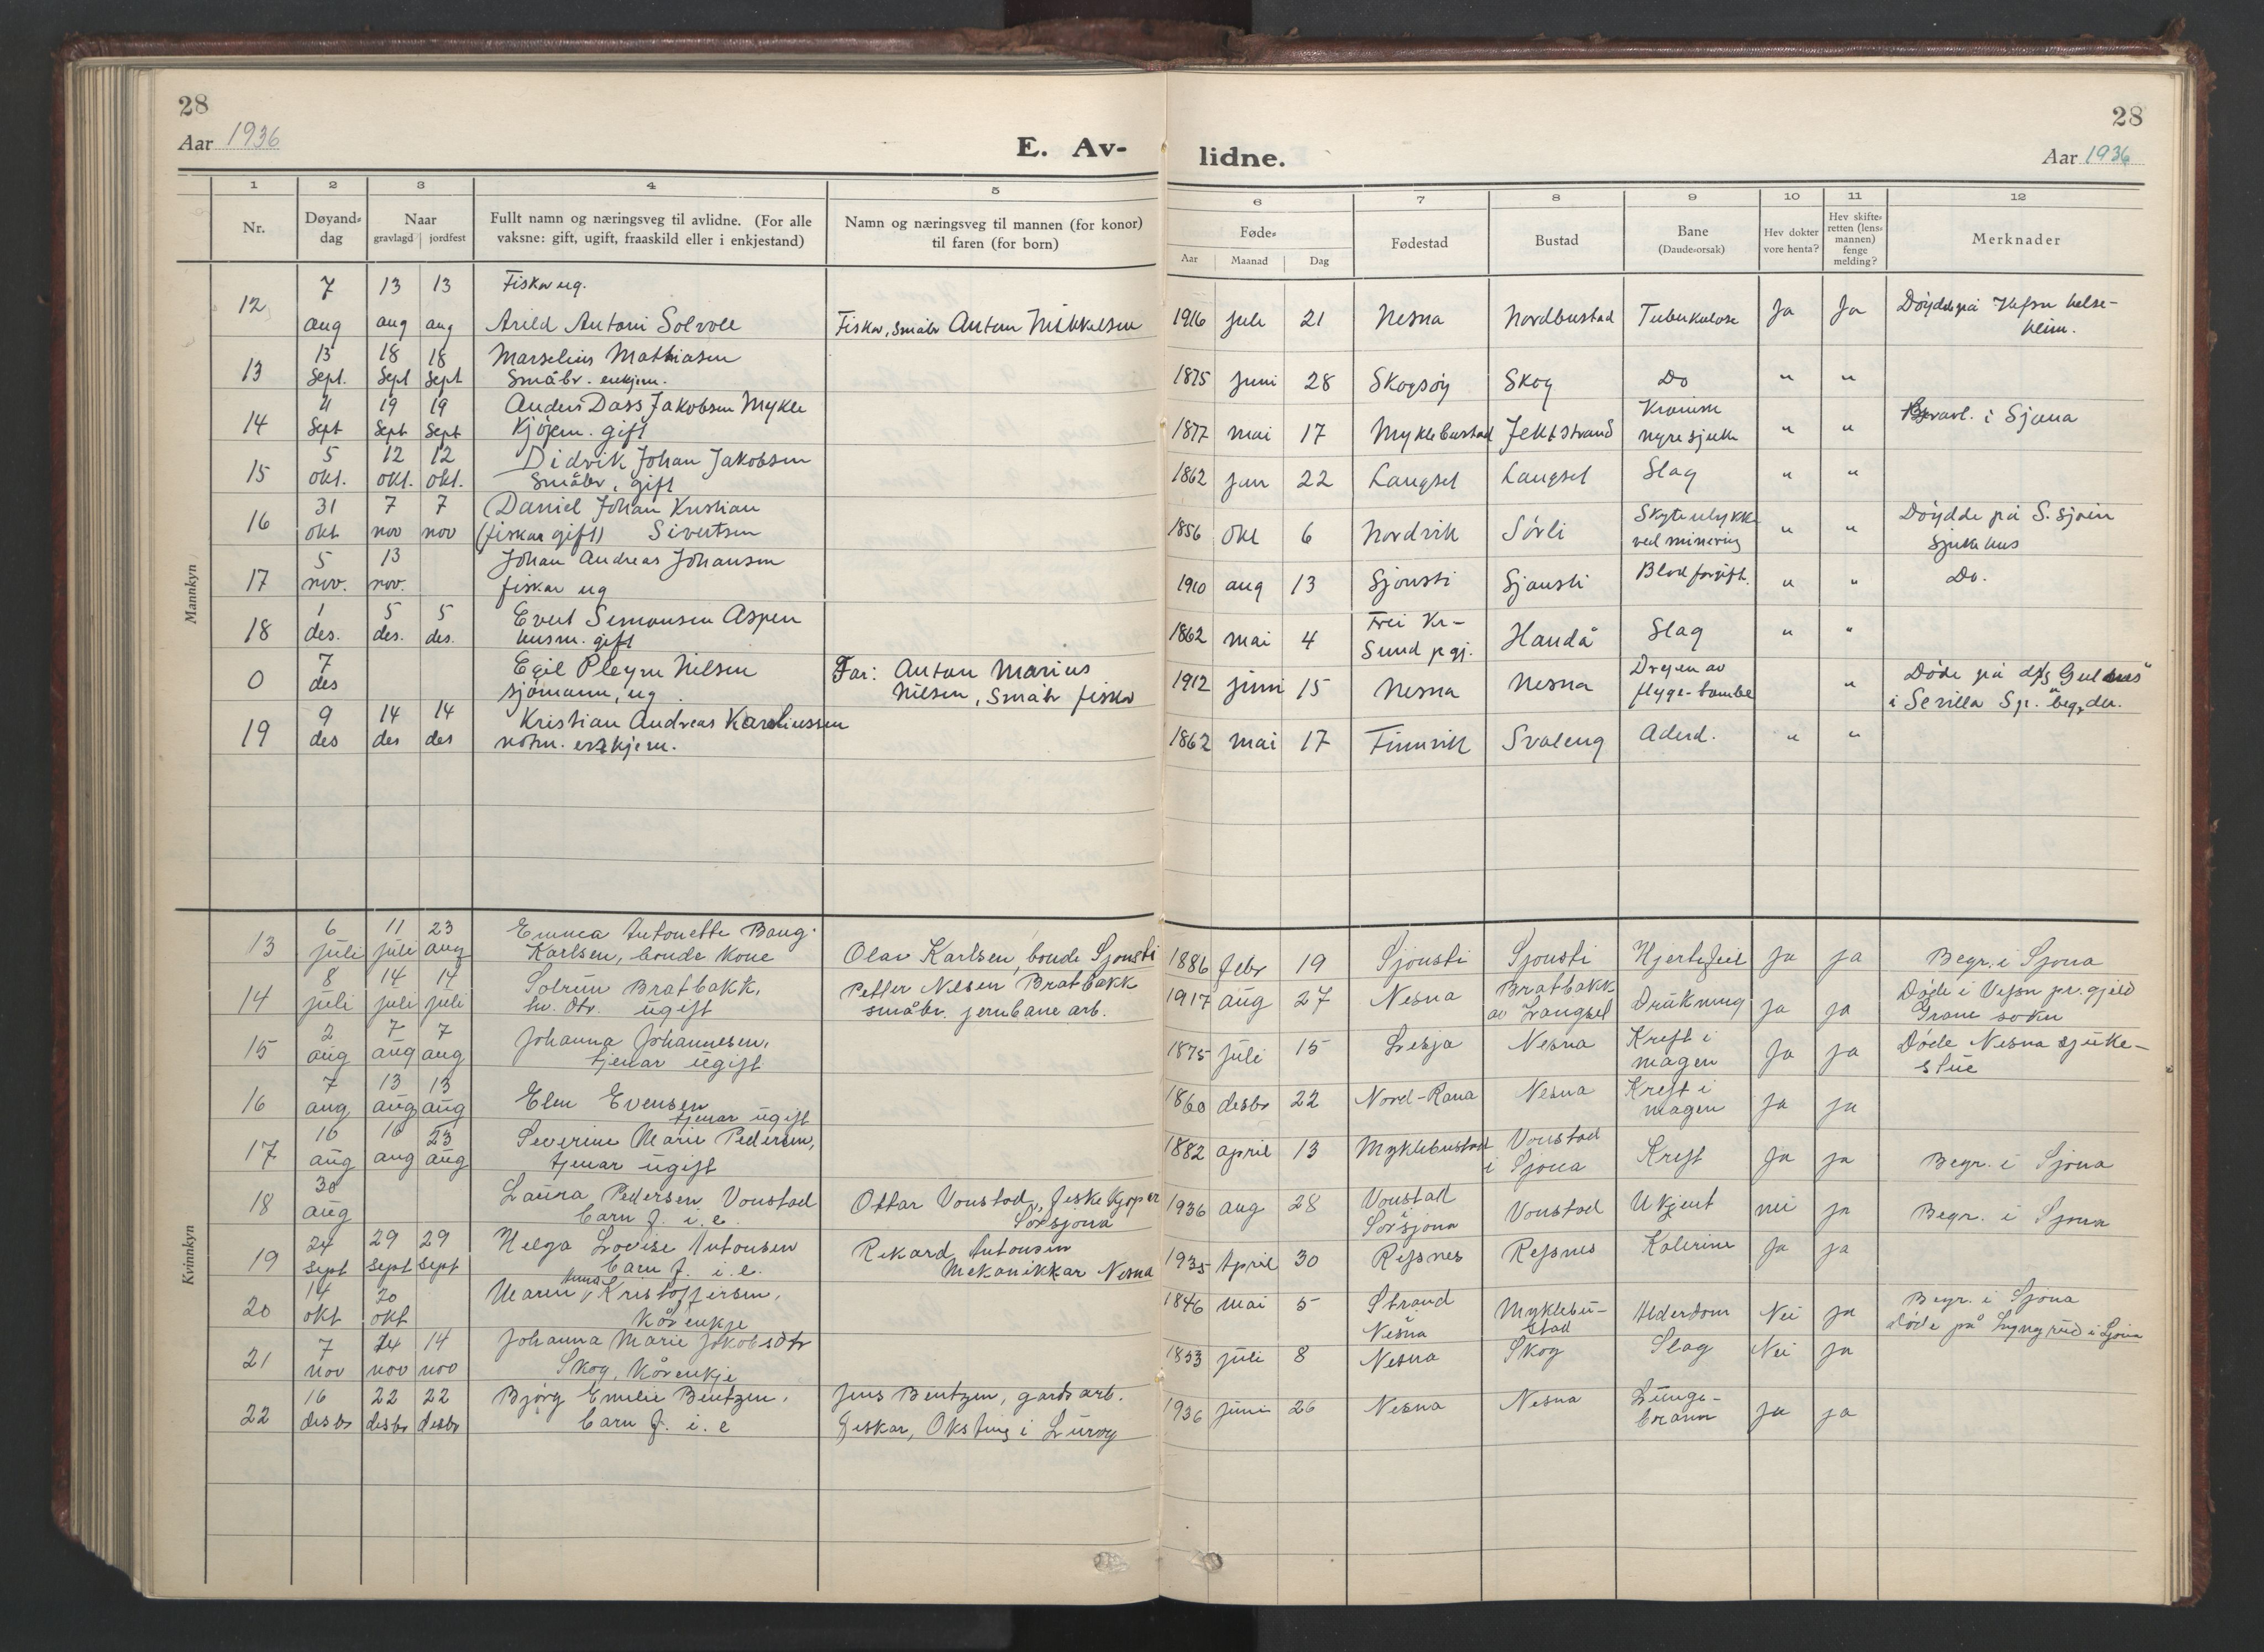 28
28
Aar 1936
E. Av-
lidne.
Aar 1936
1 2 3 4 5 6 7 8 9 10 11 12
Nr.
Døyand-
dag
Naar
gravlagd jordfest
Fullt namn og næringsveg til avlidne. (For alle
vaksne: gift, ugift, fraaskild eller i enkjestand)
Namn og næringsveg til mannen (for konor)
til faren (for born)
Føde-
Aar Maanad Dag
Fødestad
Bustad
Bane
(Daude-orsak)
Hev dokter
vore henta?
Hev skifte-
retten (lens-
mannen)
fenge
melding?
Merknader
Mannkyn
12 7 aug 13 aug 13 aug Fiskar ug.
Arild Antoni Solvoll Fiskar, småbr Anton Mikkelsen 1916 juli 21 Nesna Nordbustad Tuberkulose Ja Ja Døydde på Vefsn helse-
heim.
13 13 Sept. 18 Sept 18 Sept Marselius Mathiasen
Småbr. enkjem. 1875 juni 28 Skogsøy Skog Do " "
14 11 Sept 19 Sept 19 Sept Anders Dass Jakobsen Mykle
Kjøpm. gift 1877 mai 17 Myklebustad Jektstrand Kronisk
nyresjuke " " i Sjona
15 5 okt. 12 okt. 12 okt. Didrik Johan Jakobsen
Småbr, gift 1862 jan 22 Langset Langset Slag " "
16 31 okt 7 nov 7 nov Daniel Johan Kristian
(fiskar gift) Sivertsen 1856 okt 6 Nordvik Sørli Skyteulykke
ved minering " " Døydde på S. Sjøen
Sjukehus
17 5 nov. 13 nov. Johan Andreas Johansen
fiskar ug 1910 aug 13 Sjonsti Sjonsti Blodforgift. " " Do.
18 1 des. 5 des. 5 des. Evert Simonsen Aspen
husm. gift 1862 mai 4 Frei Kr-
Sund pgj. Handå Slag " "
0 7 des Egil Pleym Nilsen
sjømann, ug Far: Anton Marius
Nilsen, Småbr fiskar 1912 juni 15 Nesna Nesna Drepen av
flyge-bombe " Døde på d/s Gulnes
i Sevilla Sp. begr. der.
19 9 des 14 des 14 des Kristian Andreas Karoliussen
notm. enkjem. 1862 mai 17 Finnvik Svaleng Alderd. " "
Kvinnkyn
13 6 juli 11 juli 23 aug Emma Antonette Bang
Karlsen, bonde kone Olav Karlsen, bonde Sjonsti 1886 febr 19 Sjonsti Sjonsti Hjertefeil Ja ja Begr. i Sjona
14 8 juli 14 juli 14 juli Solrun Bratbakk,
hv. dtr. ugift Petter Nilsen Bratbakk
småbr. jernbane arb. 1917 aug 27 Nesna Bratbakk
av Langset Drukning ja ja Døde i Vefsn pr. gjeld
Grane sokn
15 2 aug 7 aug 7 aug Johanna Johannesen,
tjenar ugift 1875 juli 15 Lesja Nesna Kreft i
magen Ja ja Døde Nesna sjuke-
stue
16 7 aug 13 aug 13 aug Elen Evensen
tjenar ugift 1860 desbr 22 Nord-Rana Nesna Kreft i
magen ja ja
17 10 aug 16 aug 23 aug Severine Marie Pedersen,
tjenar ugift 1882 april 13 Myklebustad Vonstad
i Sjona Kreft Ja ja Begr. i Sjona
18 30 aug Laura Pedersen Vonstad
barn f. i. e. Ottar Vonstad, fiskekjøper
Sørsjona 1936 aug 28 Vonstad
i
Sørsjona Vonstad Ukjent nei ja Begr. i Sjona
19 24 Sept 29 Sept 29 Sept Helga Lovise Antonsen
barn f. i. e. Rikard Antonsen
Mekanikkar Nesna 1935 April 30 Refsnes Refsnes Kolerine Ja ja
20 14 okt 20 okt Maren Kristoffersen,
Kårenkje 1846 mai 5 Strand
i
Nesna Myklebu-
stad Alderdom Nei ja Begr. i Sjona
døde på Lyngrud i Sjona
21 7 nov 14 nov 14 nov Johanna Marie Jakobsdtr
Skog, Kårenkje 1853 juli 8 Nesna Skog Slag Nei ja
22 16 desbr 22 desbr 22 desbr Bjørg Emilie Bentzen,
barn f. i. e Jens Bentzen, gards arb.
fiskar, Oksting i Lurøy 1936 juni 26 Nesna Nesna Lunge-
brann ja ja